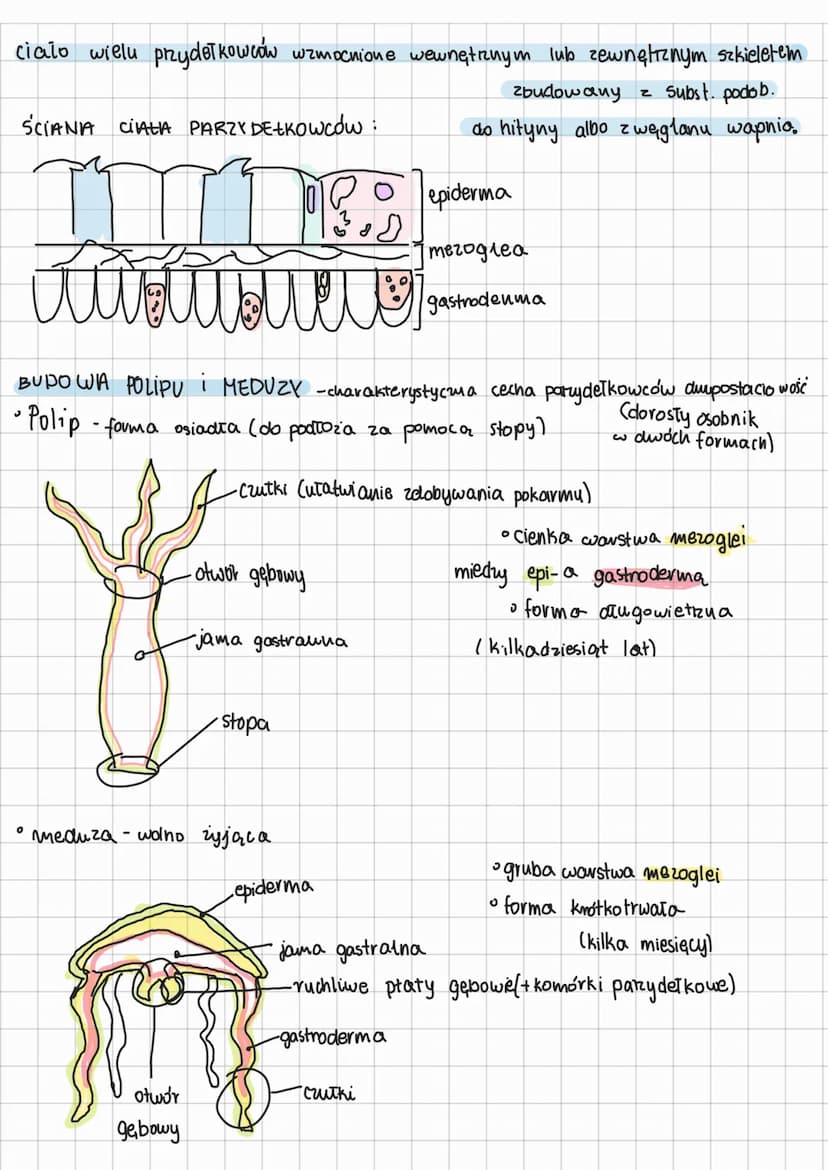 ciało wielu przydełkowców wzmocnione wewnętrznym lub zewnętrznym szkieletem
zbudowany z subst. podob.
do hityny albo z węglanu wapnia.
ŚCIANA CIAŁA PARZYDEŁKOWCÓW:
epiderma
mezoglea
gastroderma
BUDOWA POLIPU i MEDUZY - charakterystyczna cecha parzydełkowców dwupostaciowość
(dorosły osobnik
w dwóch formach)
• Polip - forma osiadła (do podłoża za pomocą stopy)
czułki (ułatwianie zdobywania pokarmu)
• cienka warstwa mezoglei
otwór gębowy
miedzy epi- a gastrodermą
• forma długowietrzna
jama gastralna
(kilkadziesiąt lat)
stopa
• meduza - wolno żyjąca
• gruba warstwa mezoglei
epiderma
• forma krótkotrwała
(kilka miesięcy)
jama gastralna
ruchliwe płaty gębowe (+ komórki parzydełkowe)
gastroderma
czułki
otwór
gębowy